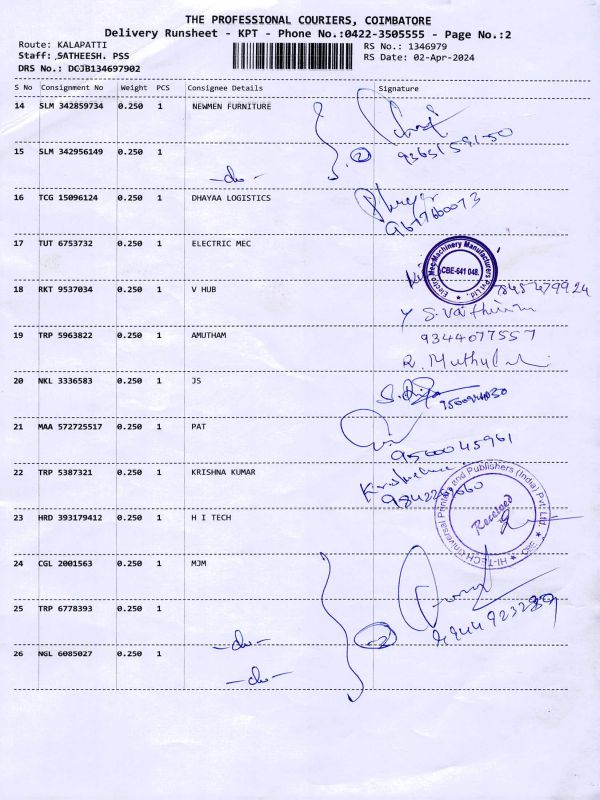 THE PROFESSIONAL COURIERS, COIMBATORE
Delivery Runsheet - KPT - Phone No.:0422-3505555 - Page No.:2
Route: KALAPATTI RS No.: 1346979
Staff: SATHEESH. PSS RS Date: 02-Apr-2024
DRS No.: DCJB134697902
S No Consignment No Weight PCS Consignee Details Signature
14 SLM 342859734 0.250 1 NEWMEN FURNITURE
9365159150
15 SLM 342956149 0.250 1 -do- 2
16 TCG 15096124 0.250 1 DHAYAA LOGISTICS
9677660073
17 TUT 6753732 0.250 1 ELECTRIC MEC
Electro Mec-Machinery Manufacturers Pvt Ltd.
CBE-641 048.
18 RKT 9537034 0.250 1 V HUB
7845479924
S. Vaithi
19 TRP 5963822 0.250 1 AMUTHAM 9344077557
R. Muthu
20 NKL 3336583 0.250 1 JS
21 MAA 572725517 0.250 1 PAT
9560045961
22 TRP 5387321 0.250 1 KRISHNA KUMAR
HI-TECH Universal Printing and Publishers (India) Pvt. Ltd. CBE
Received
23 HRD 393179412 0.250 1 H I TECH
24 CGL 2001563 0.250 1 MJM
25 TRP 6778393 0.250 1 -do-
26 NGL 6085027 0.250 1 -do-